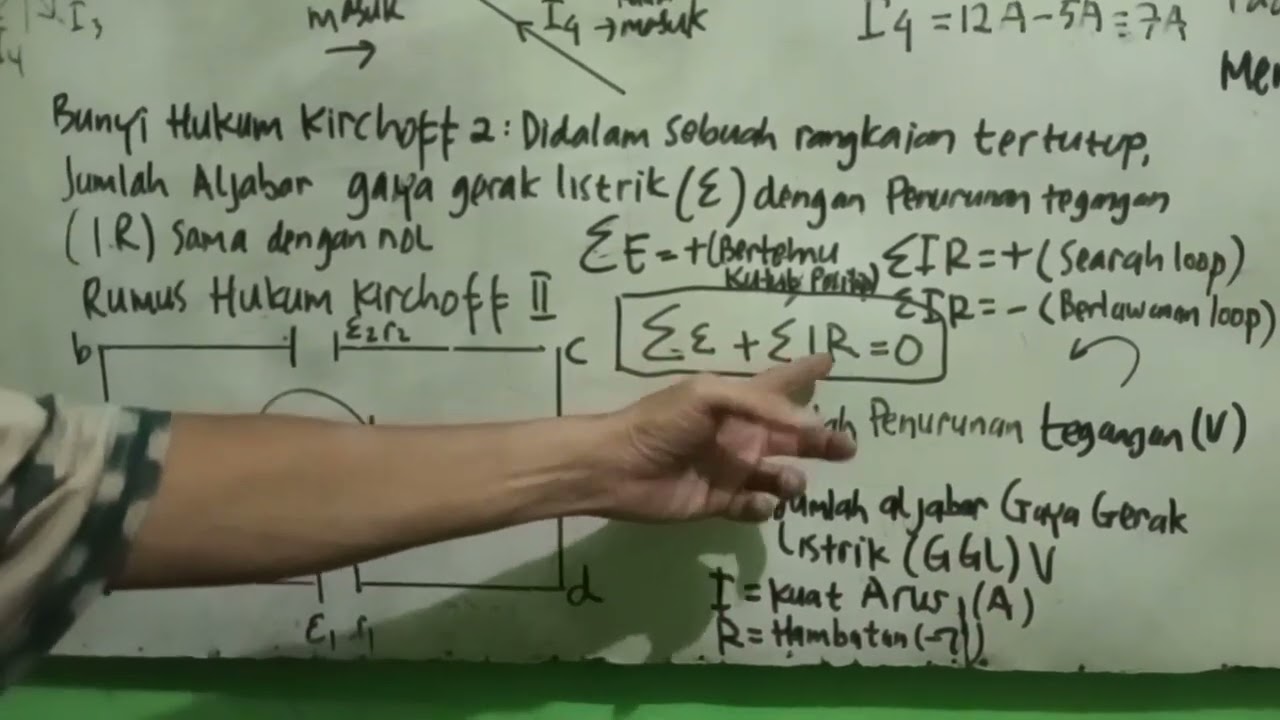 I3
I4
masuk
I4 → masuk
I4 = 12A - 5A = 7A
Mer
Bunyi Hukum Kirchoff 2: Didalam sebuah rangkaian tertutup,
Jumlah Aljabar gaya gerak listrik (Ɛ) dengan Penurunan tegangan
(I.R) sama dengan nol
ΣE = + (Bertemu Kutub Positip)
ΣIR = + (Searah loop)
ΣIR = - (Berlawanan loop)
Rumus Hukum Kirchoff II
Σε + ΣIR = 0
b
ε2 r2
c
Penurunan tegangan (V)
Jumlah aljabar Gaya Gerak
Listrik (GGL) V
I = Kuat Arus (A)
R = Hambatan
d
ε1 r1